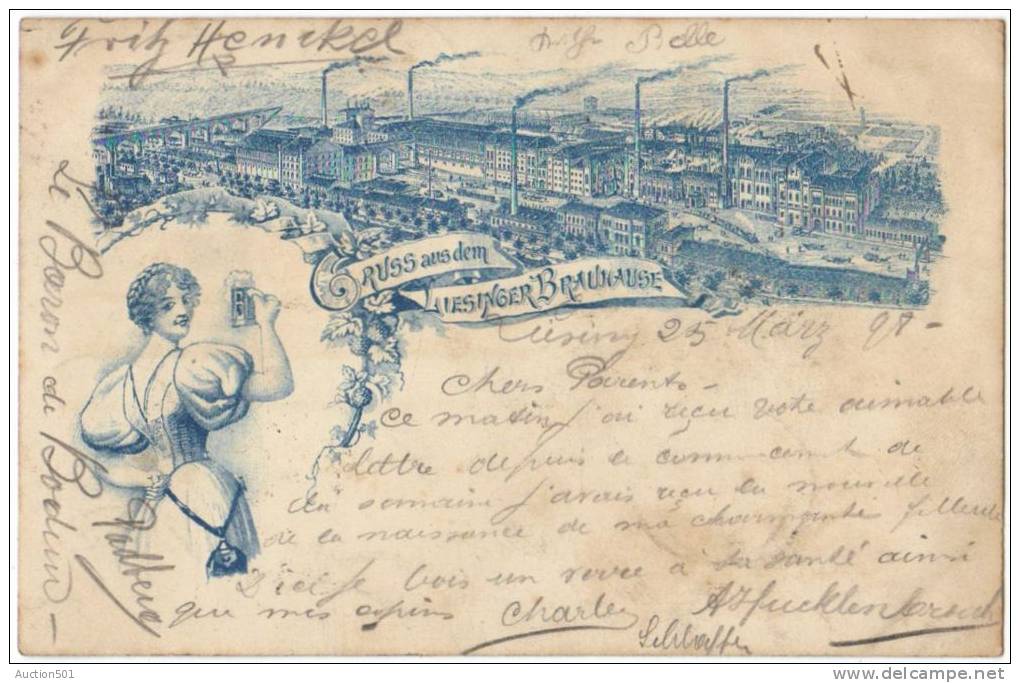 Fritz Henckel
Belle
GRUSS aus dem
LIESINGER BRAUHAUSE
Liesing 25 März 98 -
Chers Parents -
Ce matin j'ai reçu votre aimable
lettre depuis le commencement de
la semaine j'avais reçu la nouvelle
de la naissance de ma charmante filleule
D'ici je bois un verre à sa santé ainsi
que mes copins Charles
Le Baron de Bodun -
Schlosser
Auction501
www.delcampe.net